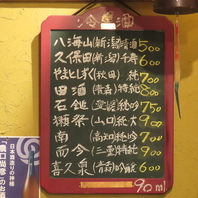 冷酒
八海山(新潟)清酒 500
久保田(新潟)千寿 600
やまとしずく(秋田) 純 700
田酒 (青森)特純 800
石鎚 (愛媛)純吟 750
獺祭 (山口)純大 900
南 (高知)純吟 700
而今 (三重)特純 900
喜久泉(青森)吟醸 600
90ml
日本酒造りの神様
「農口尚彦」のお酒